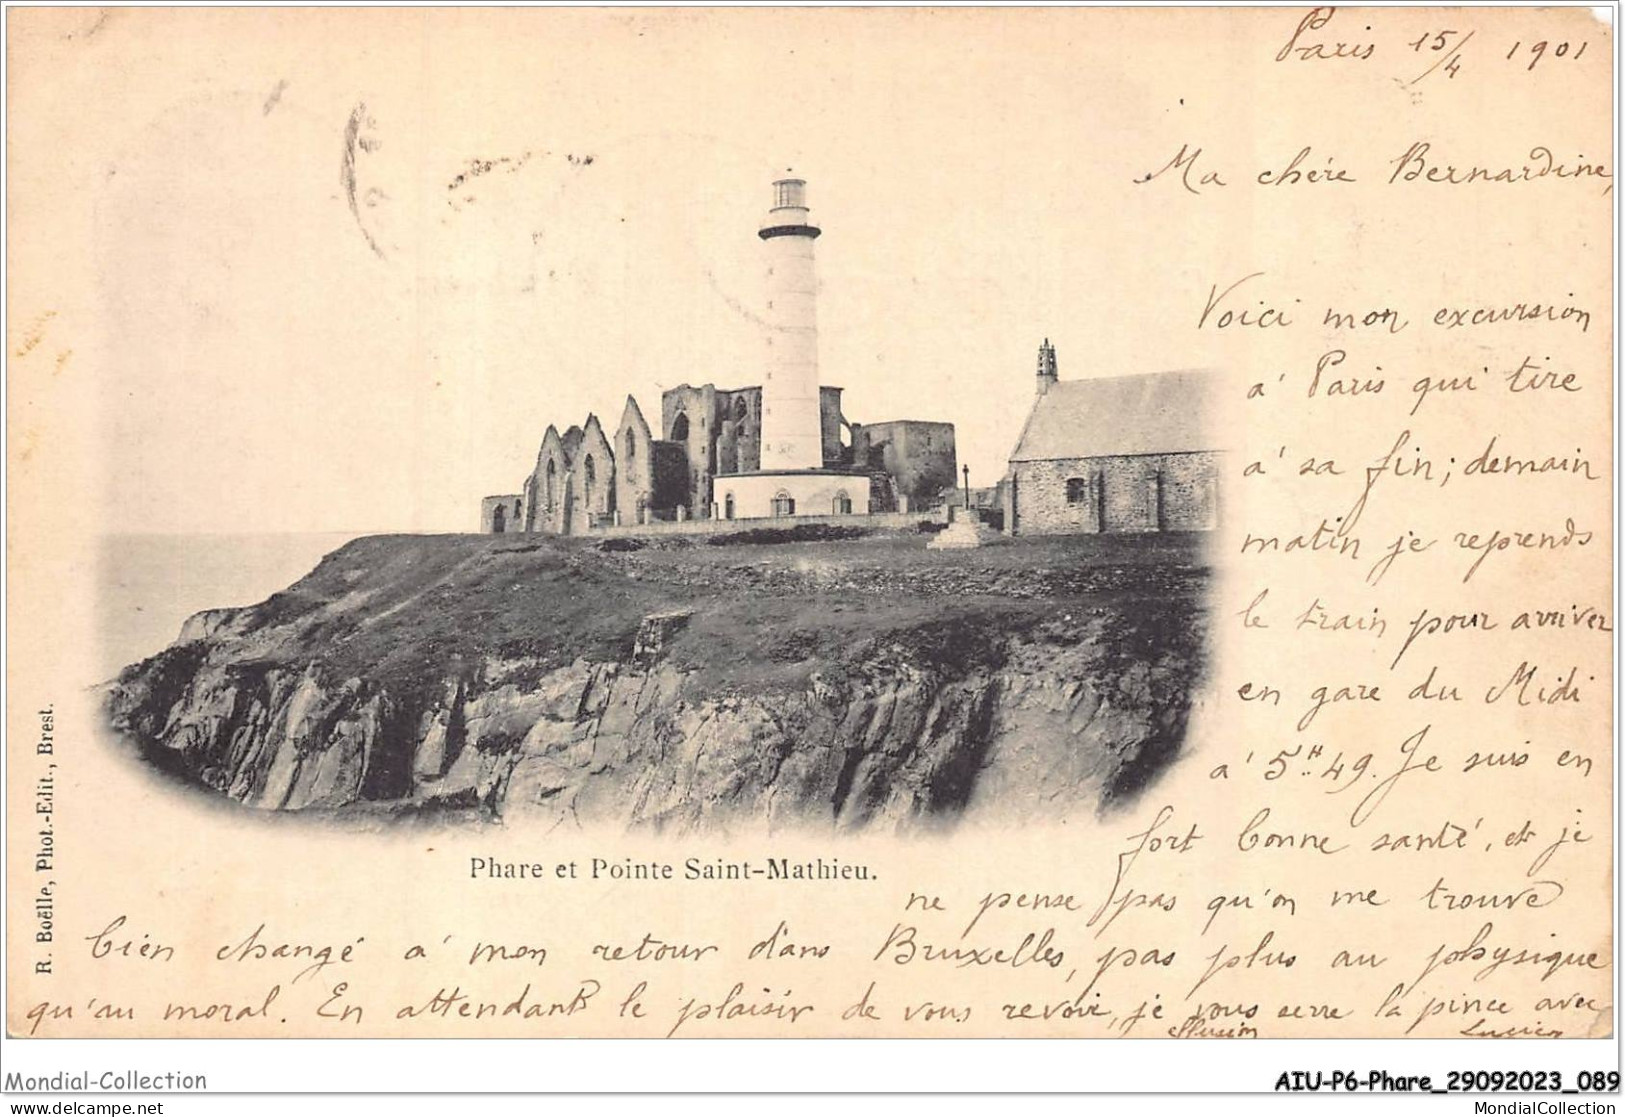 Paris 15/4 1901
Ma chère Bernardine,
Voici mon excursion
à Paris qui tire
à sa fin; demain
matin je reprends
le train pour arriver
en gare du Midi
à 5H49. Je suis en
fort bonne santé, et je
ne pense pas qu'on me trouve
bien changé à mon retour dans Bruxelles, pas plus au physique
qu'au moral. En attendant le plaisir de vous revoir, je vous serre la pince avec
effusion Lucien
Phare et Pointe Saint-Mathieu.
R. Boëlle, Phot.-Edit., Brest.
Mondial-Collection
AIU-P6-Phare_29092023_089
mondial-collection on delcampe.net
MondialCollection